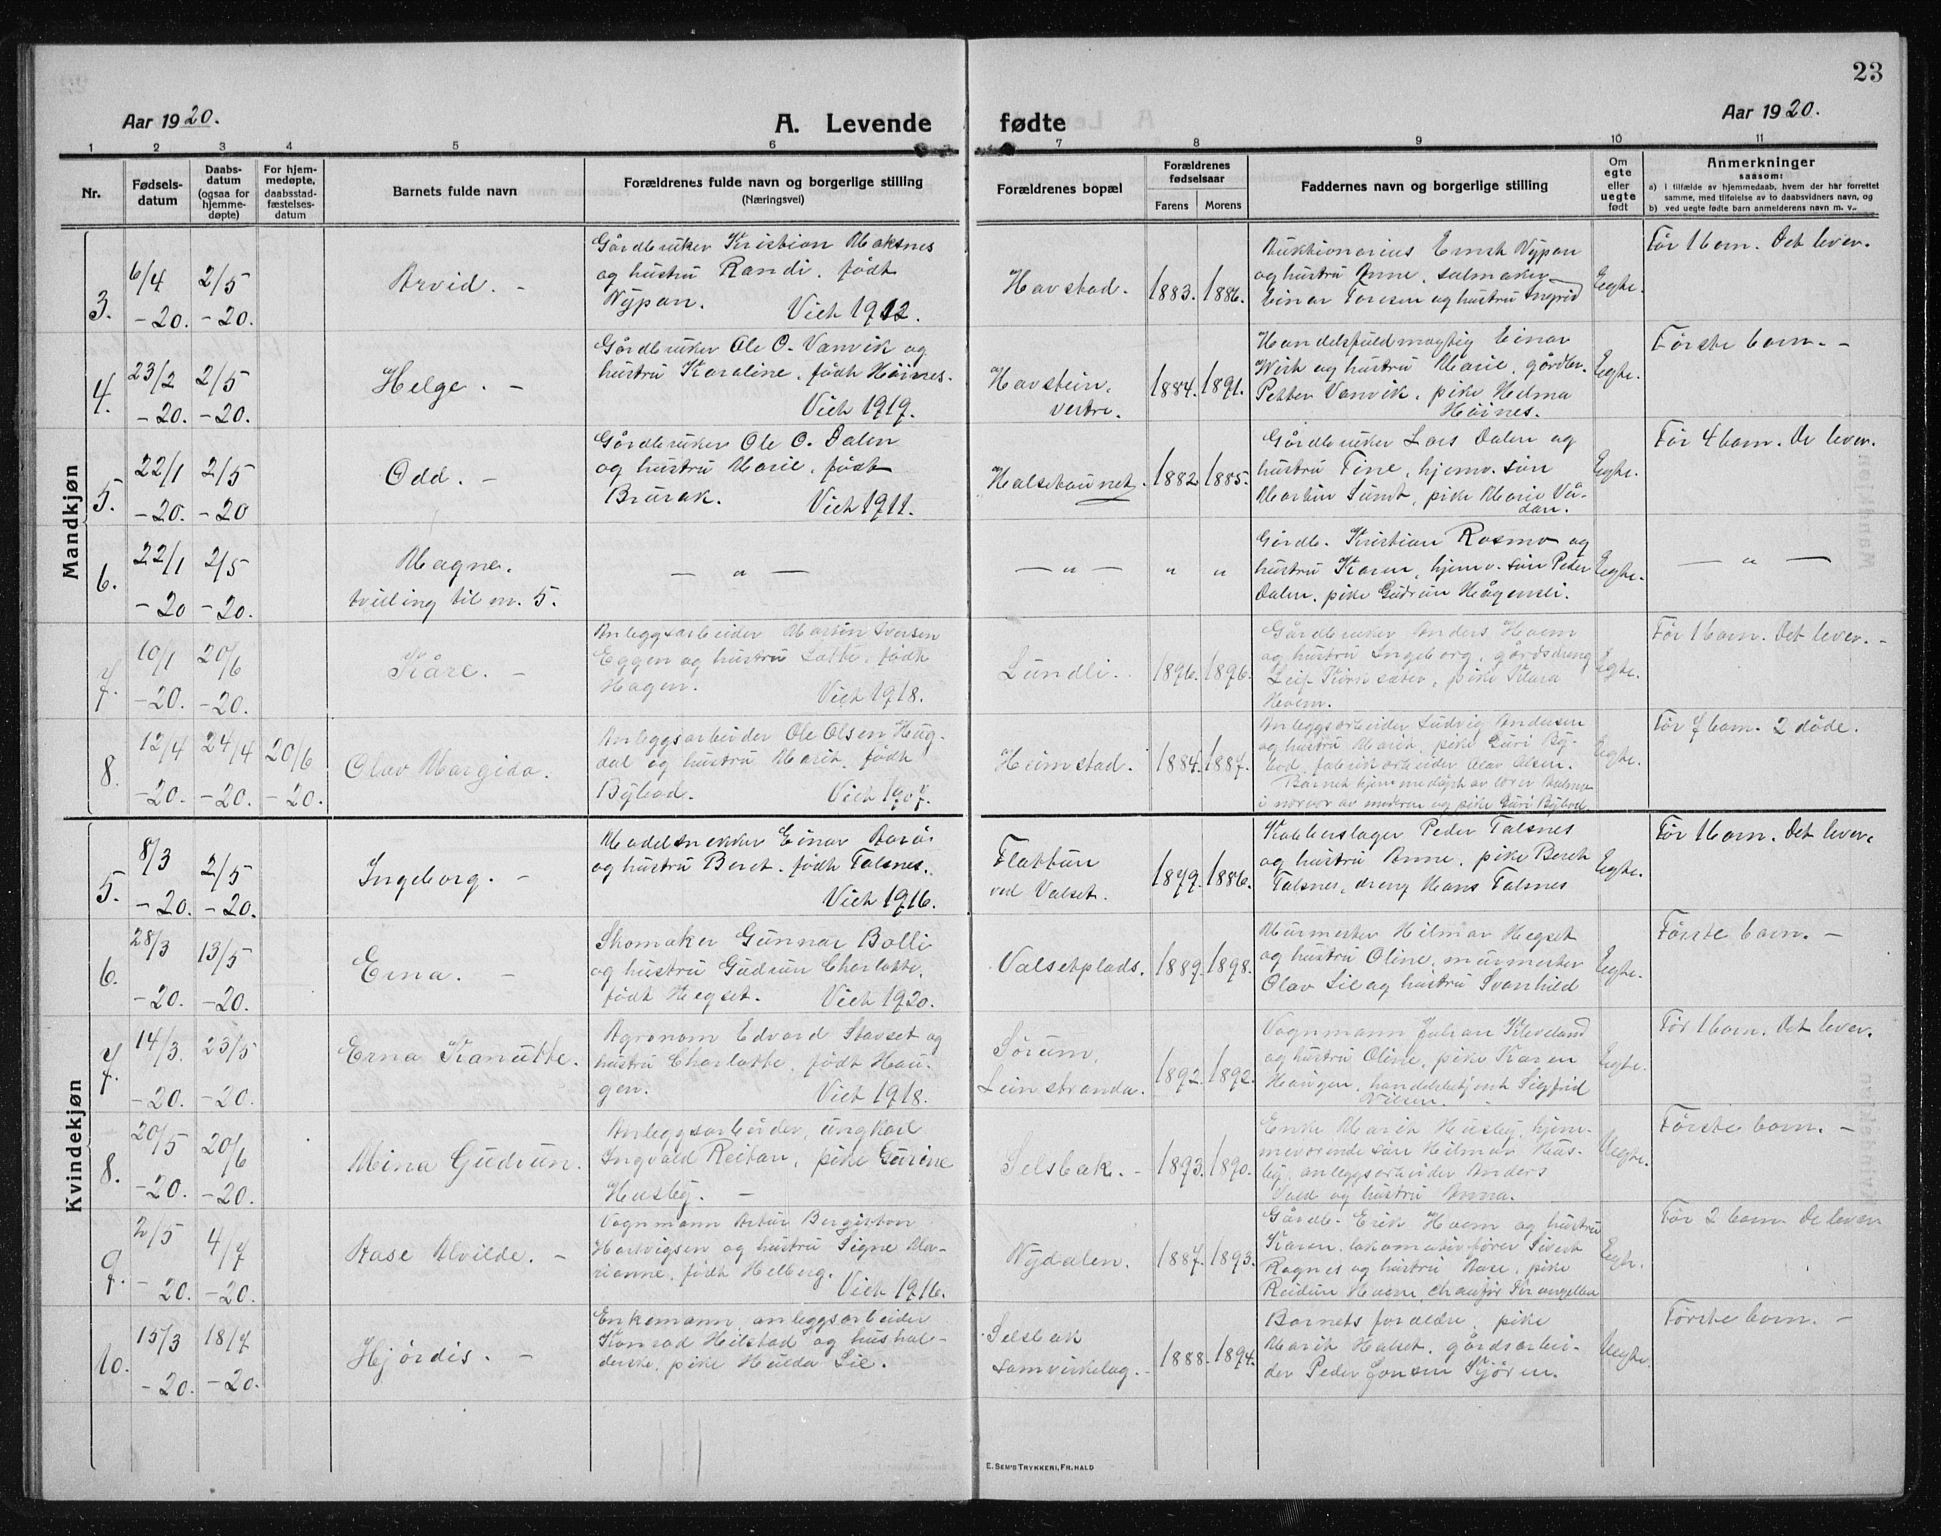 23
Aar 1920.
A. Levende fødte
Aar 1920.
1 2 3 4 5 6 7 8 9 10 11
Nr.
Fødsels-
datum
Daabs-
datum
(ogsaa for
hjemme-
døpte)
For hjem-
medøpte,
daabsstad-
fæstelses-
datum
Barnets fulde navn
Forældrenes fulde navn og borgerlige stilling
(Næringsvei)
Forældrenes bopæl
Forældrenes
fødselsaar
Farens Morens
Faddernes navn og borgerlige stilling
Om
egte
eller
uegte
født
Anmerkninger
saasom:
a) i tilfælde av hjemmedaab, hvem der har forrettet
samme, med tilføielse av to daabsvidners navn, og
b) ved uegte fødte barn anmelderens navn m. v.
Mandkjøn
3.
6/4
-20.
2/5
-20.
Arvid. -
Gårdbruker Kristian Maksnes
og hustru Randi, født
Nypan. Viet 1912.
Havstad.
1883. 1886.
Auktionarius Ernst Nypan
og hustru Anne, salmaker
Einar Toresen og hustru Ingrid
Egte.
Før 1 barn. Det lever.
4.
23/2
-20.
2/5
-20.
Helge. -
Gårdbruker Ole O. Vanvik og
hustru Karoline, født Høines.
Viet 1919.
Havstein,
vestre.
1884. 1891.
Handelsfuldmægtig Einar
Wist og hustru Marie, gårdbr.
Petter Vanvik, pike Helma
Høines.
Egte.
Første barn. -
5.
22/1
-20.
2/5
-20
Odd. -
Gårdbruker Ole O. Dalen
og hustru Marie, født
Brurak. Viet 1911.
Halsetaunet.
1882 1885.
Gårdbruker Lars Dalen og
hustru Tine, hjemv. søn
Martin Sundt, pike Marie Vå-
dan.
Egte.
Før 4 barn. De lever.
6.
22/1
-20
2/5
-20.
Magne.
tvilling til nr. 5.
- " -
- " -
" "
Gårdb. Kristian Rosmo og
hustru Karen, hjemv. søn Peder
Dalen, pike Gudrun Hågensli.
Egte.
- " -
7.
10/1
-20.
20/6
-20.
Kåre. -
Anleggsarbeider Martin Iversen
Eggen og hustru Lotte, født
Hagen. Viet 1918.
Lundli.
1896. 1896.
Gårdbruker Anders Hoem
og hustru Ingeborg, gårdsdreng
Leif Kornsæter, pike Klara
Hoem.
Egte.
Før 1 barn. Det lever. -
8.
12/4
-20.
24/4
-20.
20/6
-20.
Olav Margido.
Anleggsarbeider Ole Olsen Hug-
dal og hustru Marit, født
Bybod. Viet 1907.
Heimstad.
1884. 1887.
Anleggsarbeider Ludvig Andersen
og hustru Marit, pike Guri By-
bod, fabrikarbeider Olav Olsen.
Barnet hjemmedøpt av lærer
i nærvær av moderen og pike Guri Bybod
Egte.
Før 7 barn. 2 døde.
Kvindekjøn
5.
8/3
-20.
2/5
-20.
Ingeborg. -
Modelsnekker Einar Aarå
og hustru Beret, født Talsnes.
Viet 1916.
Flattun
ved Valset.
1879. 1886.
Kobberslager Peder Talsnes
og hustru Anne, pike Beret
Talsnes, dreng Hans Talsnes
Egte.
Før 1 barn. Det lever.
6.
28/3
-20.
13/5
-20.
Erna. -
Skomaker Gunnar Bolli
og hustru Gudrun Charlotte,
født Hegset. Viet 1920.
Valsetplads.
1889. 1898.
Murmester Hilmar Hegset
og hustru Oline, murmester
Olav Lil og hustru Svanhild
Egte.
Første barn. -
7.
14/3.
-20.
23/5
-20.
Erna Kanutte.
Agronom Edvard Stavset og
hustru Charlotte, født Hau-
gen. Viet 1918.
Sørum,
Leinstranda.
1892. 1892.
Vognmann Johan Kleveland
og hustru Oline, pike Karen
Haugen, handelsbetjent Sigfrid
Nilsen.
Egte.
Før 1 barn. Det lever.
8.
20/5
-20.
20/6
-20.
Mina Gudrun.
Anleggsarbeider, ungkarl
Ingvald Reitan, pike Gurine
Husby. -
Selsbak. -
1893. 1890.
Enke Marit Husby, hjem-
meværende søn Hilmar Hus-
by, anleggsarbeider Anders
Vold og hustru Anna.
Uegte.
Første barn. -
9.
2/5
-20.
4/7
-20.
Aase Alvilde. -
Vognmann Artur Bergiston
Hartvigsen og hustru Signe Ma-
rianne, født Helberg.
Viet 1916.
Nydalen.
1887. 1893.
Gårdb. Erik Hoem og hustru
Karen, lokomotivfører Sivert
Ragnes og hustru Aase, pike
Reidun Hoem, chauffør
Egte.
Før 2 barn. De lever
10.
15/3
-20.
18/7
-20.
Hjørdis. -
Enkemann, anleggsarbeider
Konrad Heilstad og hushol-
derske, pike Hulda Lil.
Selsbak
samvirkelag.
1888. 1894.
Barnets forældre, pike
Marit Halset, gårdsarbei-
der Peder Jonsen Sjøren.
Uegte.
Første barn. -
E. Sem's Trykkeri, Fr.hald